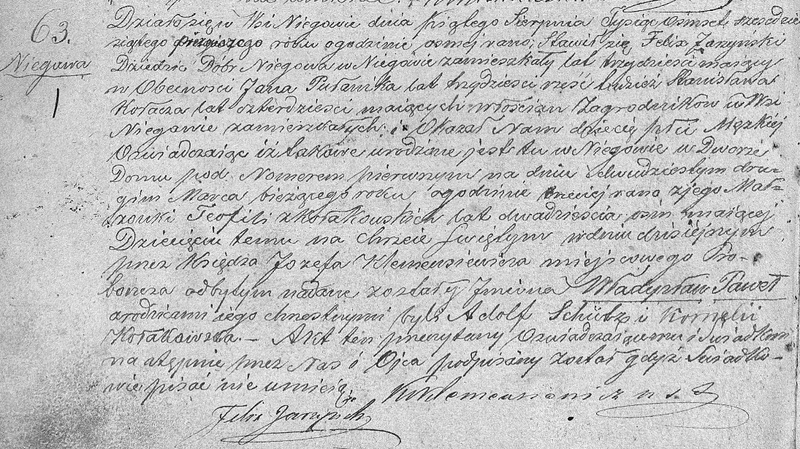 63.
Niegowa
1
Działo się w Wsi Niegowie dnia piątego Sierpnia Tysiąc Ośmset sześćdzie
siątego pierwszego roku o godzinie ósmej rano; Stawił się Felix Jarzyński
Dziedzic Dóbr Niegowa w Niegowie zamieszkały lat trzydzieści maiący
w Obecności Jana lat trzydzieści sześć tudzież Stanisława
Kołacza lat czterdzieści maiących włościan Zagrodników w Wsi
Niegowie zamieszkałych; i Okazał Nam dziecię płci Męzkiej
Oświadczaiąc iż takowe urodzone jest tu w Niegowie w Dworze
Domu pod Nomerem pierwszym na dniu dwudziestym dru-
gim Marca bieżącego roku o godzinie rano z jego Mał-
żonki Teofili z Kołakowskich lat dwadzieścia ośm maiącej
Dziecięciu temu na chrzcie świętym w dniu dzisiejszym
przez Księdza Józefa Klemensiewicza miejscowego Pro-
boszcza odbytym nadane zostały Imiona Władysław Paweł
a rodzicami jego chrzestnymi byli Adolf Schütz i Kornelia
Kołakowska. – Akt ten przeczytany Oświadczaiącemu i Świadkom
na stępnie przez Nas i Ojca podpisany został gdyż Świadko-
wie pisać nie umieią
X Klemensiewicz
Felix Jarzyński